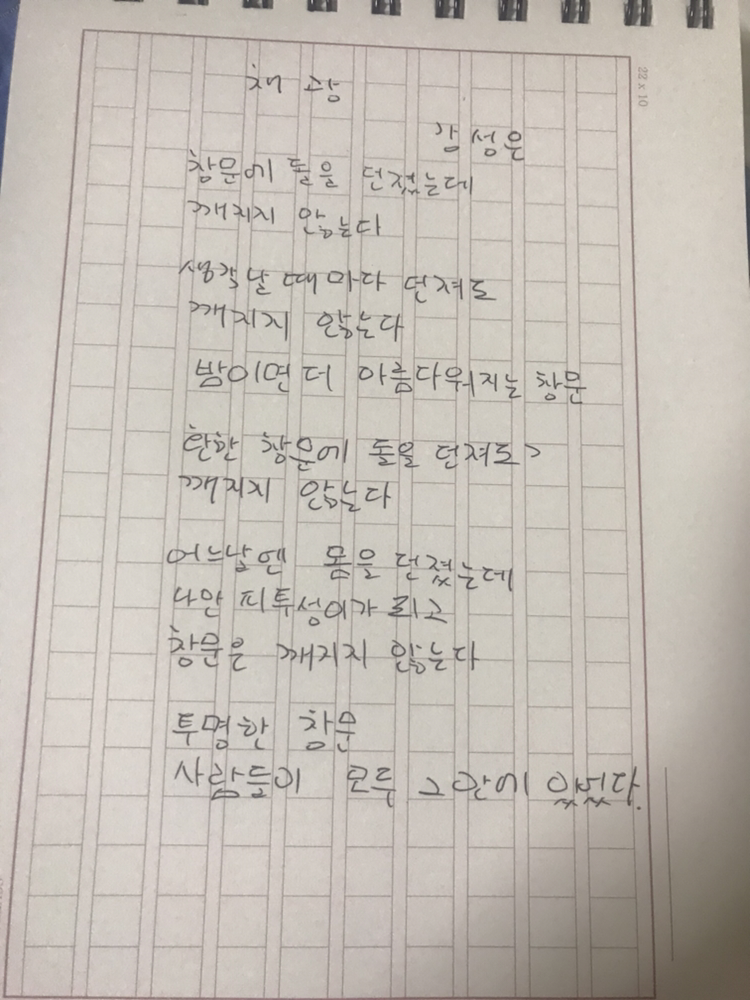 채 광
강성은
22 x 10
창문에 돌을 던졌는데
깨지지 않는다
생각날 때마다 던져도
깨지지 않는다
밤이면 더 아름다워지는 창문
환한 창문에 돌을 던져도
깨지지 않는다
어느날엔 몸을 던졌는데
나만 피투성이가 되고
창문은 깨지지 않는다
투명한 창문
사람들이 모두 그 안에 있었다.